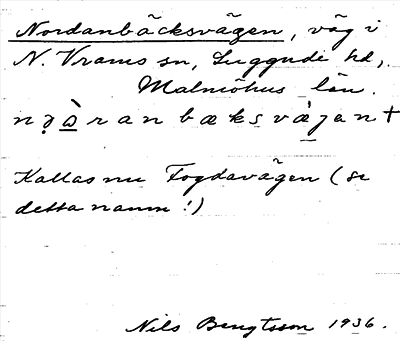 Nordanbäcksvägen, väg i
N. Vrams sn, Luggude hd,
Malmöhus län.
nọàranbæksvàjan+
Kallas nu Fogdavägen (se
detta namn!)
Nils Bengtsson 1936.